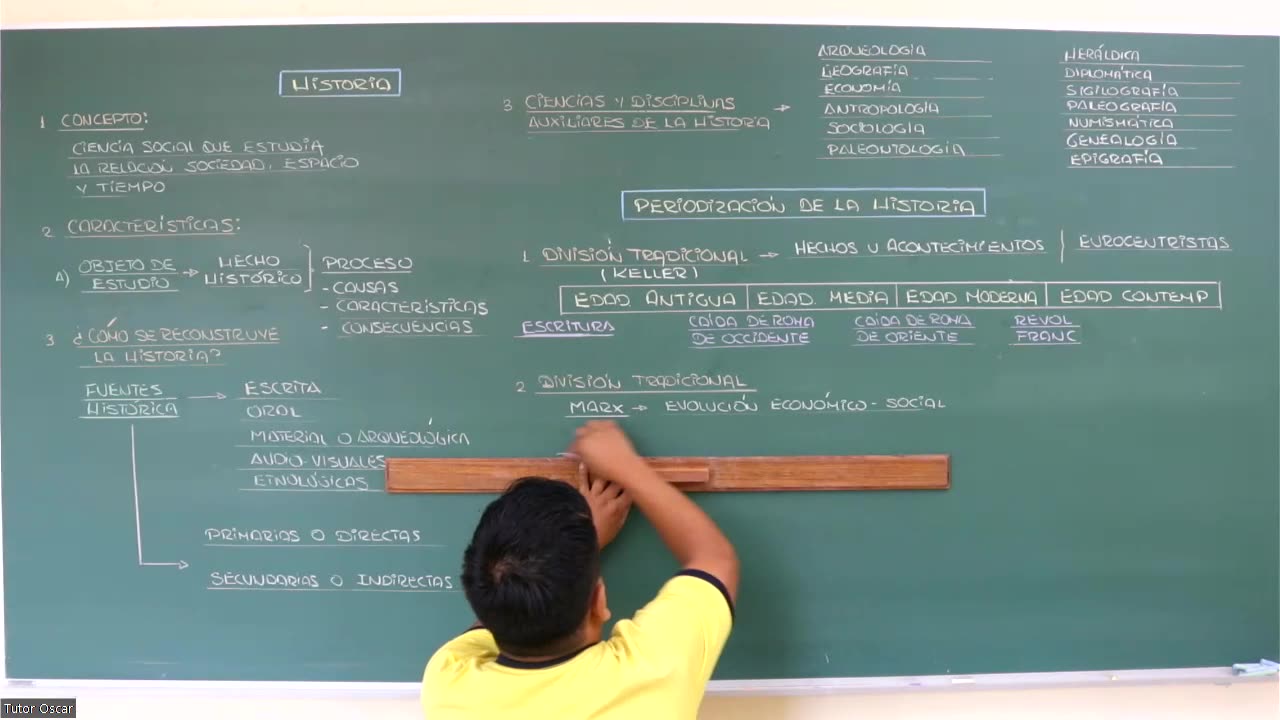 HISTORIA
1 CONCEPTO:
CIENCIA SOCIAL QUE ESTUDIA
LA RELACIÓN SOCIEDAD, ESPACIO
Y TIEMPO
2 CARACTERÍSTICAS:
A) OBJETO DE ESTUDIO → HECHO HISTÓRICO
PROCESO
- CAUSAS
- CARACTERÍSTICAS
- CONSECUENCIAS
3 ¿CÓMO SE RECONSTRUYE
LA HISTORIA?
FUENTES
HISTÓRICA
ESCRITA
ORAL
MATERIAL O ARQUEOLÓGICA
AUDIO-VISUALES
ETNOLÓGICAS
PRIMARIAS O DIRECTAS
SECUNDARIAS O INDIRECTAS
3 CIENCIAS Y DISCIPLINAS
AUXILIARES DE LA HISTORIA
ARQUEOLOGÍA
GEOGRAFÍA
ECONOMÍA
ANTROPOLOGÍA
SOCIOLOGIA
PALEONTOLOGÍA
HERÁLDICA
DIPLOMÁTICA
SIGILOGRAFÍA
PALEOGRAFÍA
NUMISMÁTICA
GENEALOGÍA
EPIGRAFÍA
PERIODIZACIÓN DE LA HISTORIA
1 DIVISIÓN TRADICIONAL → HECHOS U ACONTECIMIENTOS | EUROCENTRISTAS
(KELLER)
EDAD ANTIGUA | EDAD MEDIA | EDAD MODERNA | EDAD CONTEMP
ESCRITURA
CAÍDA DE ROMA
DE OCCIDENTE
CAÍDA DE ROMA
DE ORIENTE
REVOL
FRANC
2 DIVISIÓN TRADICIONAL
MARX → EVOLUCIÓN ECONÓMICO - SOCIAL
Tutor Oscar